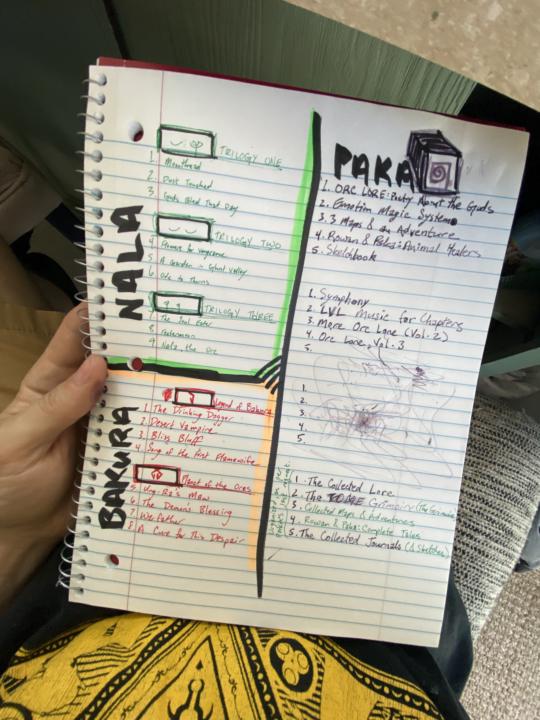 NALA
TRILOGY ONE
1.
2. Dust Touched
3. Gods Bled That Day
TRILOGY TWO
4 Flowers for Vengeance
5 A Garden in Valley
6 Ode to Thorns
TRILOGY THREE
7 The Soul Eater
8
9 Nala, the Orc
BAKURA
Legend of Bakura
1. The Drinking Dagger
2. Desert Vampire
3. Bliss Bluff
4. Song of the First Flamewife
of the Orcs
5 Maw
6 The Demon's Blessing
7 Werfather
8 A Cure for This Despair
PAKA
1. ORC LORE: About the Gods
2. Emotion Magic System
3. 3 Maps & an Adventure
4. Rowan & Paka: Animal Healers
5. Sketchbook
1. Symphony
2. LVL Music for Chapters
3. More Orc Lore (Vol. 2)
4. Orc Lore, Vol. 3
5.
1.
2.
3.
4.
5.
1. The Collected Lore
2. The Grimoire
3. Collected Maps & Adventures
4. Rowan & Paka: Complete Tales
5. The Collected Journals (& Sketches)